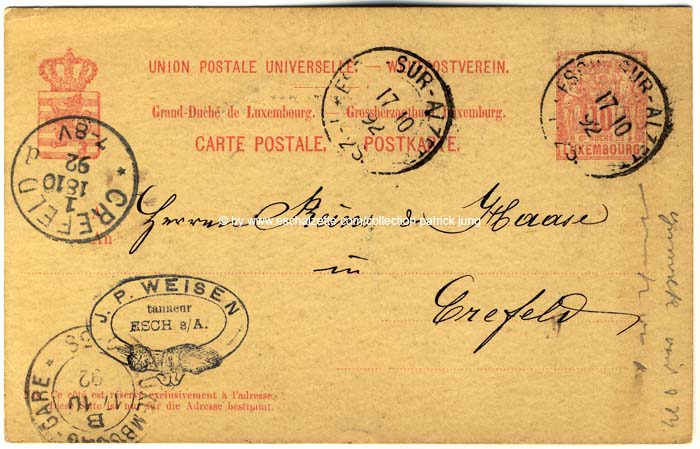 UNION POSTALE UNIVERSELLE. — WELTPOSTVEREIN.
Grand-Duché de Luxembourg. Grossherzogthum Luxemburg.
CARTE POSTALE. POSTKARTE.
-SUR-ALZ
17 10
92
SUR-ALZ
17 10
92
LUXEMBOURG
CREFELD
1
1810
92
7-8V
d
An
Herren & Haase
in
Crefeld
© by www.eschalzette.com/collection patrick jung
J. P. WEISEN
tanneur
ESCH s/A.
LUXEMBOURG-GARE
92
Ce côté est réservé exclusivement à l'adresse.
Diese Seite ist nur für die Adresse bestimmt.